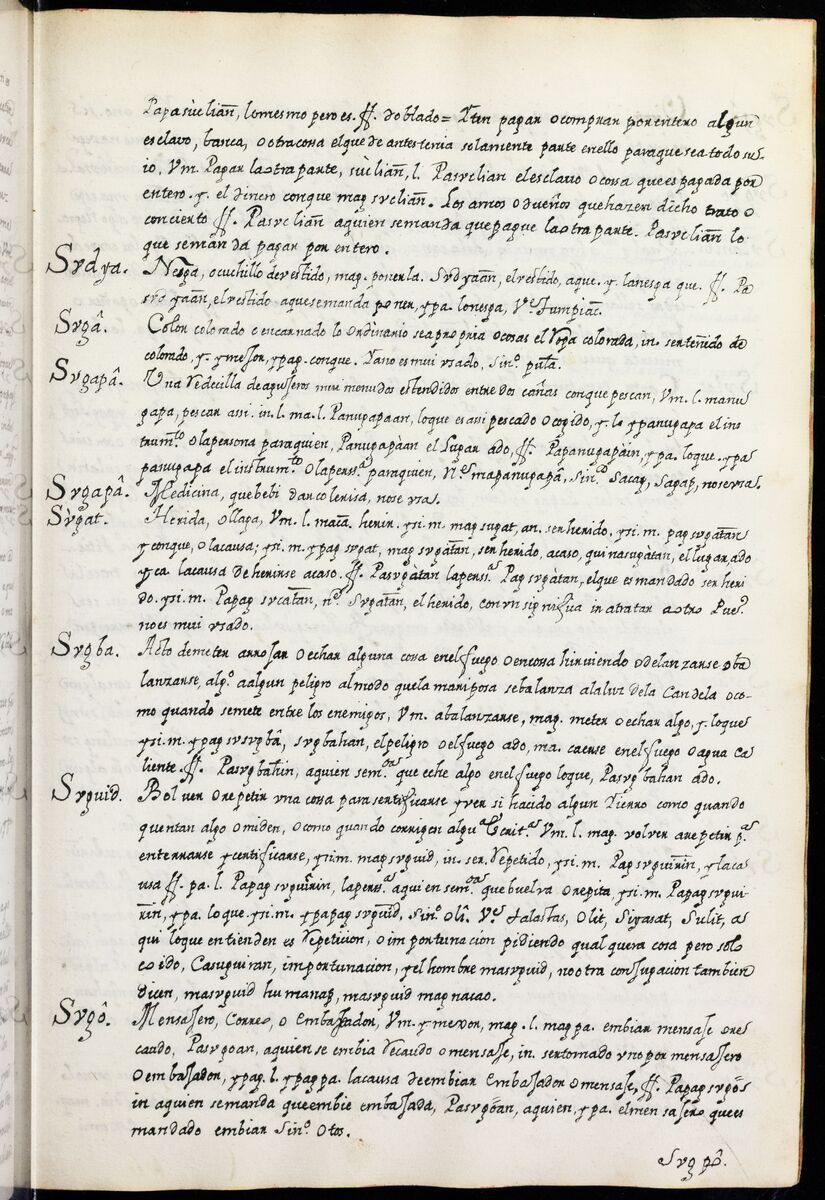 Papasùclian̄, lo mesmo pero es. ff. doblado = Yten pagar o comprar por entero algun
esclavo, banca, o otra cosa el que de antes tenia solamente parte en ello para que sea todo su-
io, Vm. Pagar la otra parte, sùclian̄, l. Pasuclian el esclavo o cosa que es pagada por
entero. y. el dinero con que mag suclian̄. Los amos o dueños que hazen dicho trato o
concierto ff. Pasuclian̄ a quien se manda que pague la otra parte. Pasuclian̄ lo
que se manda pagar por entero.
Sudya. Nesga, o cuchillo de vestido, mag. ponerla. Sudyaan̄, el vestido, a que. y. la nesga que. ff. Pa
sudyaan̄, el vestido a que se manda poner, ypa. lo nesga, Vᵉ Jumpiac̄.
Sugâ. Color colorado o encarnado lo ordinario sea propria o cosas el Ropa colorada, in. ser teñido de
colorado, y. ymeson, ypag. con que. Ya no es mui usado. Sinº. pula.
Sugapâ. Una Redecilla de aguseros mui menudos estendidos entre dos cañas con que pescan, Vm. l. manu
gapa, pescar assi. in. l. ma. l. Panugapaan, lo que es assi pescado o cogido, y. lo ypanugapa el ins
trumᵗᵒ o la persona para quien, Panugapàan el Lugar ado, ff. Papanugapàin, ypa. lo que. ypa
pasugapa el instrumᵗᵒ o la persª. para quien, Vᵉ mapanugapâ, Sinº. Sacag, Sagap, no se usa.
Sugapâ. Medicina, que bebi dar colerisa, no se usa.
Sùgat. Herida, o llaga, Vm. l. man̄a. herir. ysi. m. mag sugat, an. ser herido. ysi. m. pag sugatan̄
y con que, o la causa; ysi. m. ypag sugat, mag sugatan̄, ser herido, acaso, qui nasugàtan, el lugar ado
y ca. la causa de herirse acaso. ff. Pasugàtan la persª. Pag sugàtan, el que es mandado ser heri
do. ysi. m. Papag sucatan̄, nº. Sugatan̄, el herido, con un significa in atratar a otro Pueº.
no es mui usado.
Sugba. Acto de meter arrojar o echar alguna cosa en el fuego o en cosa hirviendo o de lanzarse o ba
lanzarse, algº. a algun peligro al modo que la mariposa se balanza a la luz de la Candela o co-
mo quando se mete entre los enemigos, Vm. abalanzarse, mag. meter o echar algo, y. lo que
ysi. m. ypag susugbâ, sugbahan, el peligro o el fuego ado, ma. caerse en el fuego o agua ca
liente. ff. Pasugbahin, a quien semᵒⁿ. que eche algo en el fuego lo que, Pasugbahan ado.
Suguid. Bolver o repetir una cosa para sertificarse y ver si ha cido algun Yierro como quando
quentan algo o miden, o como quando corrigen algu ª Escritª. Vm. l. mag. volver a repetir pª.
enterrarse y certificarse, ysi. m. mag suguid, in. ser Repetido, ysi. m. Pag suguirin̄, y la ca
usa ff. pa. l. Papag suguîrin, la persª. a quien semᵒⁿ. que buelva o repita, ysi. m. Papag sugui-
rin̄, ypa. lo que. ysi. m. ypapag suguid̄. Sinº. Oli. Vᵉ talastas, Olit, Siyasat, Sulit, a
qui lo que entienden es Repeticion, o importunacion pidiendo qual quera cosa pero solo
e oido, Casuguiran, importunacion, y el hombre masuguid, no otra conjugacion tambien
dicen, masuguid humanap, masuguid magnacao.
Sugô. Mensajero, Correo, o Embajador, Vm. y mexor, mag. l. mag pa. embiar mensaje o re
caudo, Pasugoan, a quien se embia Recaudo o mensaje, in. ser tomado uno por mensajero
o embajador, ypag. l. ypag pa. la causa de embiar Embajador o mensaje, ff. Papag sugoô
in a quien se manda que embie embajada, Pasugôan, a quien, ypa. el mensajero que es
mandado embiar Sinº. Otos.
Sug pô.